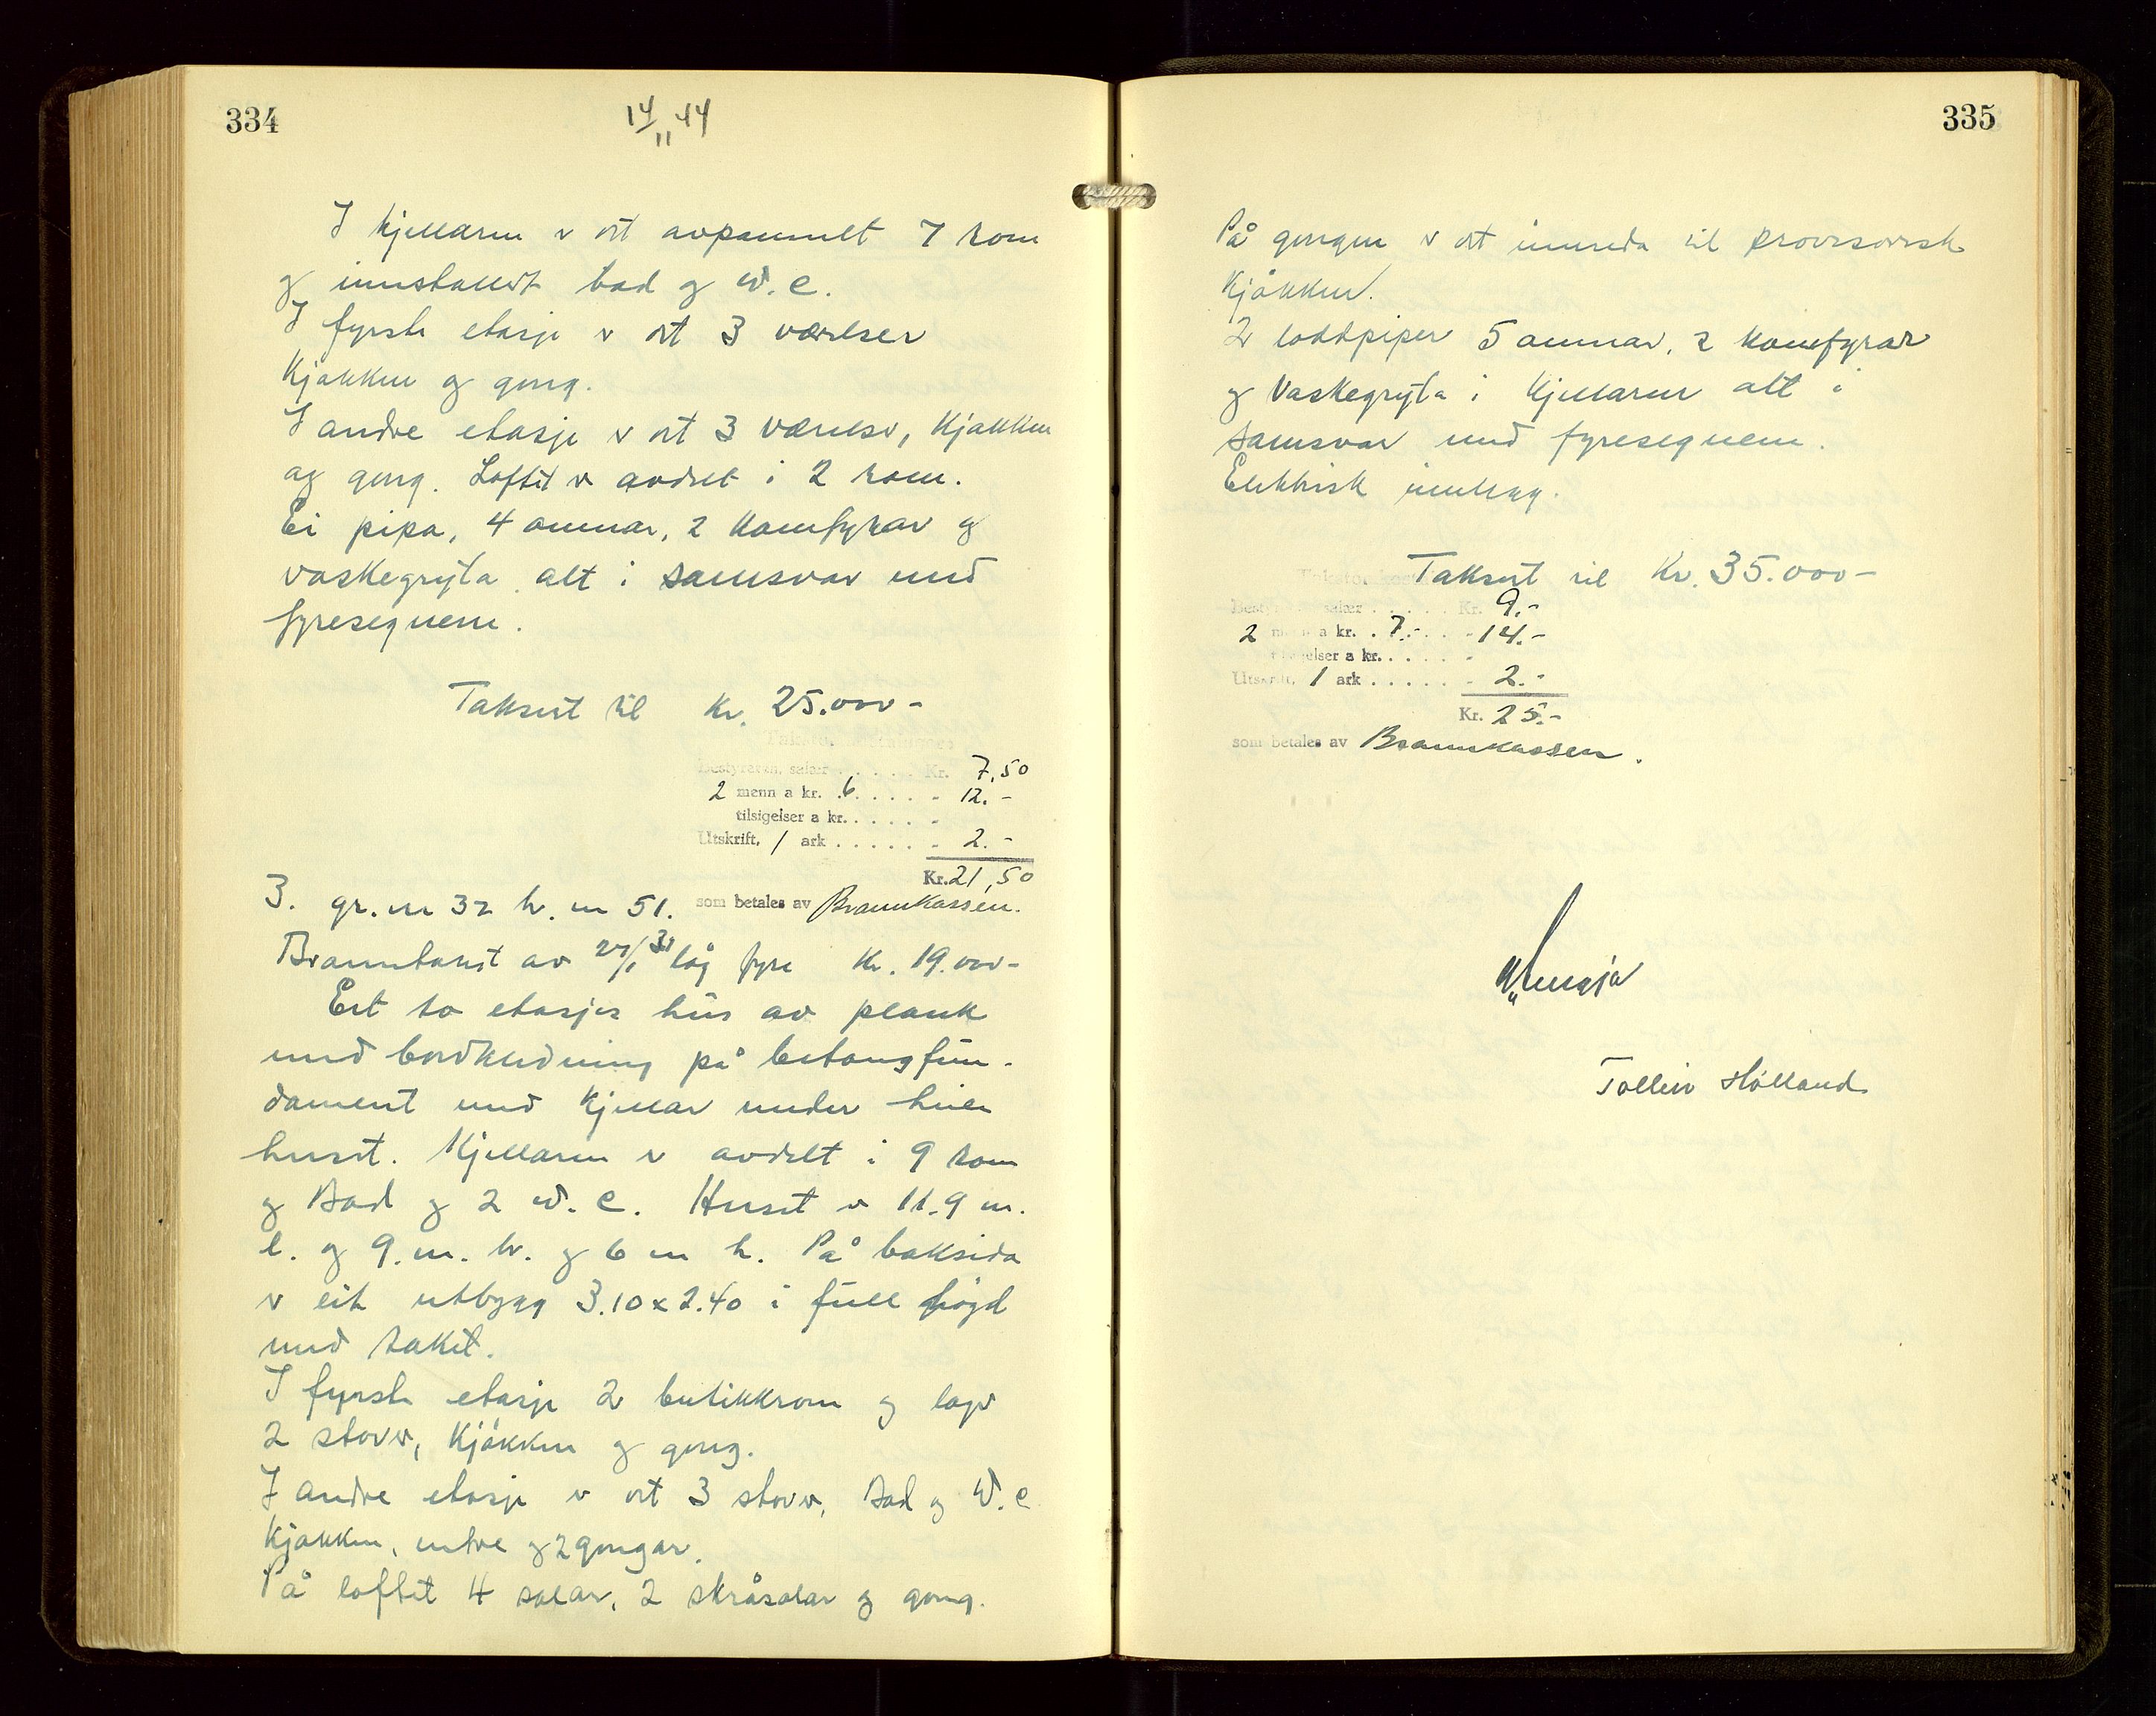 334
14/11 44
I kjellaren er det avpanelt 7 rom
og innstallert bad og W.C.
I fyrste etasje er det 3 værelser
Kjøkken og gong.
I andre etasje er det 3 værelser, Kjøkken
og gong. Loftet er avdelt i 2 rom.
Ei pipa, 4 omnar, 2 Komfyrar og
vaskegryta alt i samsvar med
fyresegnene.
Taksert til Kr. 25.000-
Bestyreren, salær ..... Kr. 7,50
2 menn a kr. 6. .... - 12.-
tilsigelser a kr. ..... -
Utskrift, 1 ark ...... - 2.-
Kr. 21,50
3. gr. nr 32 br. nr 51. som betales av Brannkassen.
Branntakst av 27/1 31 låg fyre Kr. 19.000-
Eit to etasjes hus av plank
med bordkledning på betongfun-
dament med kjellar under heile
huset. Kjellaren er avdelt i 9 rom
og Bad og 2 W.C. Huset er 11.9 m.
l. og 9. m. br. og 6 m h. På baksida
er eit utbygg 3.10 x 2.40 i full høgd
med taket.
I fyrste etasje 2 butikkrom og lager
2 stover, Kjøkken og gong.
I andre etasje er det 3 stover, Bad og W.C
Kjøkken, entre og 2 gongar.
På loftet 4 salar, 2 skråsalar og gong.
335
På gongen er det innreda til provisorisk
Kjøkken.
2 loddpiper 5 omnar, 2 Komfyrar
og Vaskegryta i Kjellaren alt i
samsvar med fyresegnene.
Elektrisk innlegg.
Taksert til Kr. 35.000-
Bestyreren, salær ..... Kr. 9.-
2 menn a kr. 7.- .... - 14.-
tilsigelser a kr. ..... -
Utskrift, 1 ark ..... - 2.-
Kr. 25.-
som betales av Brannkassen.
Tolleiv Hølland